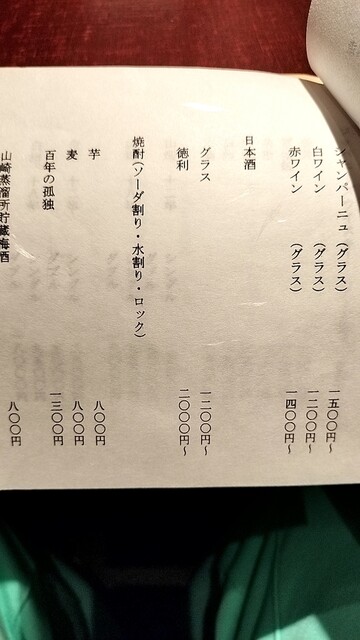 シャンパーニュ（グラス） 一五〇〇円～
白ワイン （グラス） 一二〇〇円～
赤ワイン （グラス） 一四〇〇円～
日本酒
グラス 一二〇〇円～
徳利 二〇〇〇円～
焼酎（ソーダ割り・水割り・ロック）
芋 八〇〇円
麦 八〇〇円
百年の孤独 一三〇〇円
山崎蒸溜所貯蔵梅酒 八〇〇円